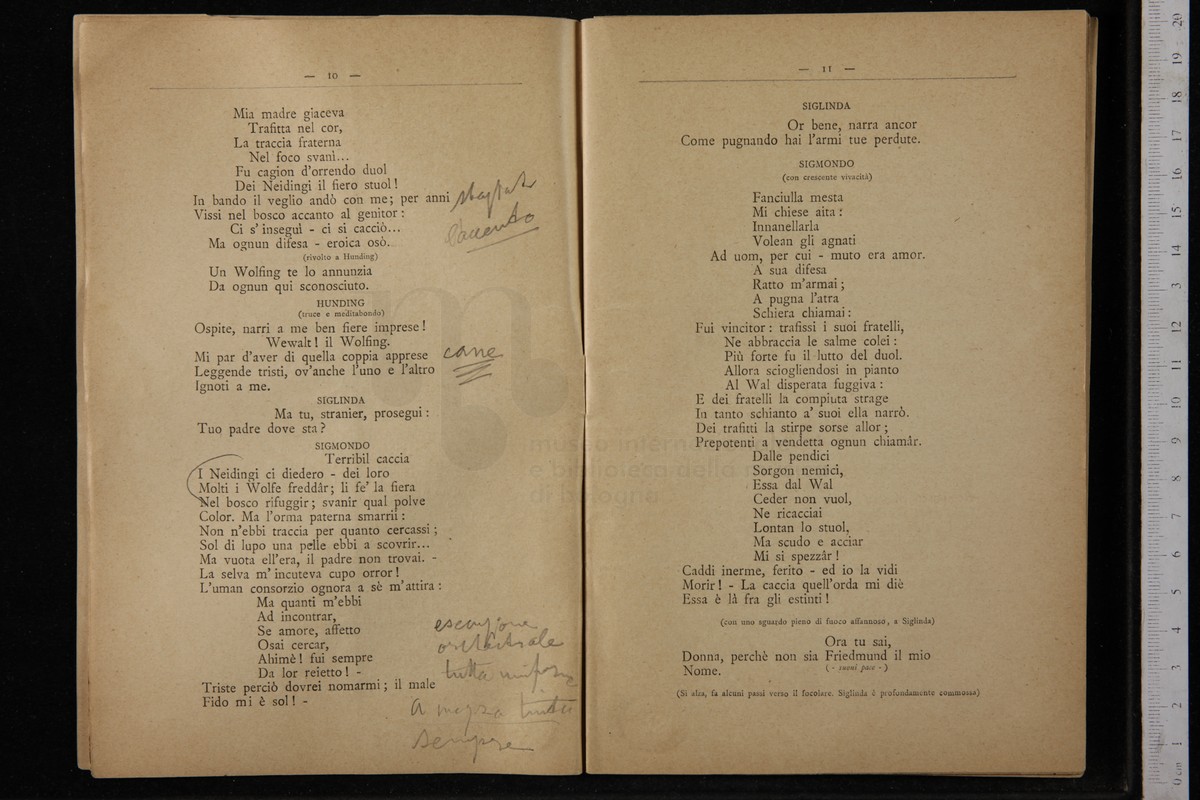 — 10 —
Mia madre giaceva
Trafitta nel cor,
La traccia fraterna
Nel foco svanì...
Fu cagion d'orrendo duol
Dei Neidingi il fiero stuol!
In bando il veglio andò con me; per anni
Vissi nel bosco accanto al genitor:
l'accento
Ci s'inseguì - ci si cacciò...
Ma ognun difesa - eroica osò.
(rivolto a Hunding)
Un Wolfing te lo annunzia
Da ognun qui sconosciuto.
HUNDING
(truce e meditabondo)
Ospite, narri a me ben fiere imprese!
Wewalt! il Wolfing.
Mi par d'aver di quella coppia apprese
cane
Leggende tristi, ov'anche l'uno e l'altro
Ignoti a me.
SIGLINDA
Ma tu, stranier, prosegui:
Tuo padre dove sta?
SIGMONDO
Terribil caccia
I Neidingi ci diedero - dei loro
Molti i Wolfe freddâr; li fe' la fiera
Nel bosco rifuggir; svanir qual polve
Color. Ma l'orma paterna smarrii:
Non n'ebbi traccia per quanto cercassi;
Sol di lupo una pelle ebbi a scovrir...
Ma vuota ell'era, il padre non trovai. -
La selva m'incuteva cupo orror!
L'uman consorzio ognora a sè m'attira:
Ma quanti m'ebbi
Ad incontrar,
Se amore, affetto
Osai cercar,
Ahimè! fui sempre
Da lor reietto! -
Triste perciò dovrei nomarmi; il male
Fido mi è sol! -
orchestrale
tutta
a mezza tinta
sempre
— 11 —
SIGLINDA
Or bene, narra ancor
Come pugnando hai l'armi tue perdute.
SIGMONDO
(con crescente vivacità)
Fanciulla mesta
Mi chiese aita:
Innanellarla
Volean gli agnati
Ad uom, per cui - muto era amor.
A sua difesa
Ratto m'armai;
A pugna l'atra
Schiera chiamai:
Fui vincitor: trafissi i suoi fratelli,
Ne abbraccia le salme colei:
Più forte fu il lutto del duol.
Allora sciogliendosi in pianto
Al Wal disperata fuggiva:
E dei fratelli la compiuta strage
In tanto schianto a' suoi ella narrò.
Dei trafitti la stirpe sorse allor;
Prepotenti a vendetta ognun chiamâr.
Dalle pendici
Sorgon nemici,
Essa dal Wal
Ceder non vuol,
Ne ricacciai
Lontan lo stuol,
Ma scudo e acciar
Mi si spezzâr!
Caddi inerme, ferito - ed io la vidi
Morir! - La caccia quell'orda mi diè
Essa è là fra gli estinti!
(con uno sguardo pieno di fuoco affannoso, a Siglinda)
Ora tu sai,
Donna, perchè non sia Friedmund il mio
Nome.
(- suoni pace -)
(Si alza, fa alcuni passi verso il focolare. Siglinda è profondamente commossa)
museo internazionale
e biblioteca della
di bologna
0 cm 1 2 3 4 5 6 7 8 9 10 11 12 13 14 15 16 17 18 19 20